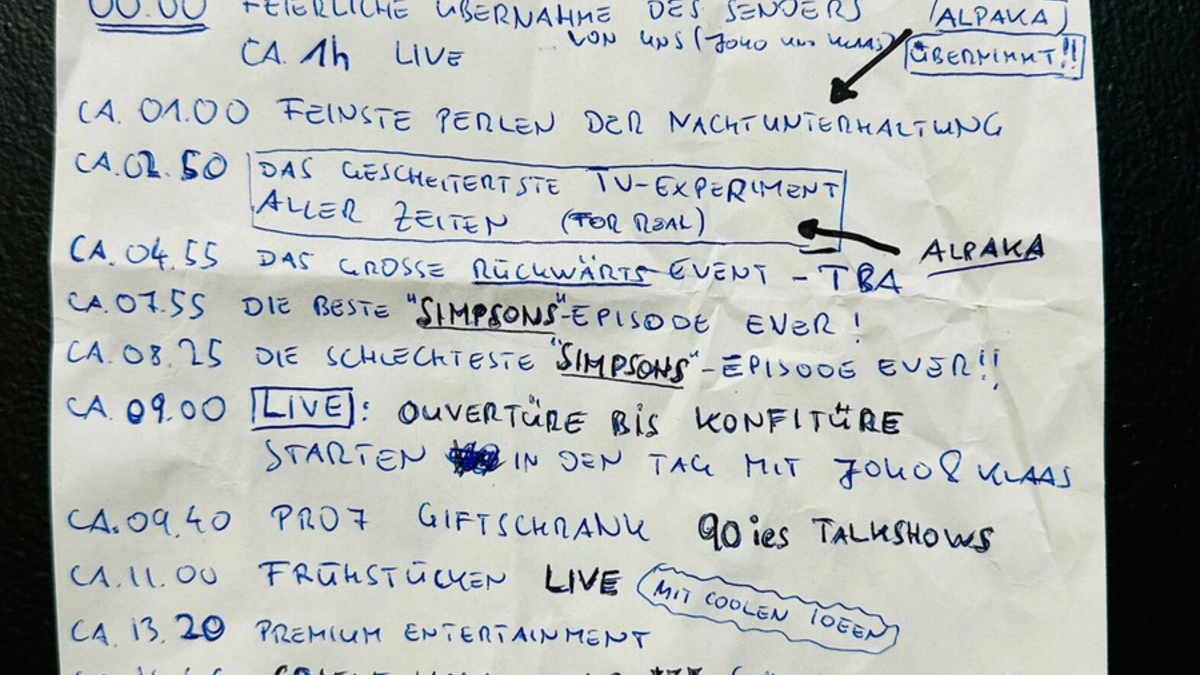 00.00 FEIERLICHE ÜBERNAHME DES SENDERS (ALPAKA)
VON UNS (JOKO UND KLAAS) ÜBERNIMMT!!
CA. 1h LIVE
CA. 01.00 FEINSTE PERLEN DER NACHTUNTERHALTUNG
CA. 02.50 DAS GESCHEITERTSTE TV-EXPERIMENT
ALLER ZEITEN (FOR REAL)
ALPAKA
CA. 04.55 DAS GROSSE RÜCKWÄRTS-EVENT - TBA
CA. 07.55 DIE BESTE "SIMPSONS"-EPISODE EVER!
CA. 08.25 DIE SCHLECHTESTE "SIMPSONS"-EPISODE EVER!!
CA. 09.00 LIVE: OUVERTÜRE BIS KONFITÜRE
STARTEN IN DEN TAG MIT JOKO & KLAAS
CA. 09.40 PRO7 GIFTSCHRANK 90ies TALKSHOWS
CA. 11.00 FRÜHSTÜCKEN LIVE MIT COOLEN IDEEN
CA. 13.20 PREMIUM ENTERTAINMENT